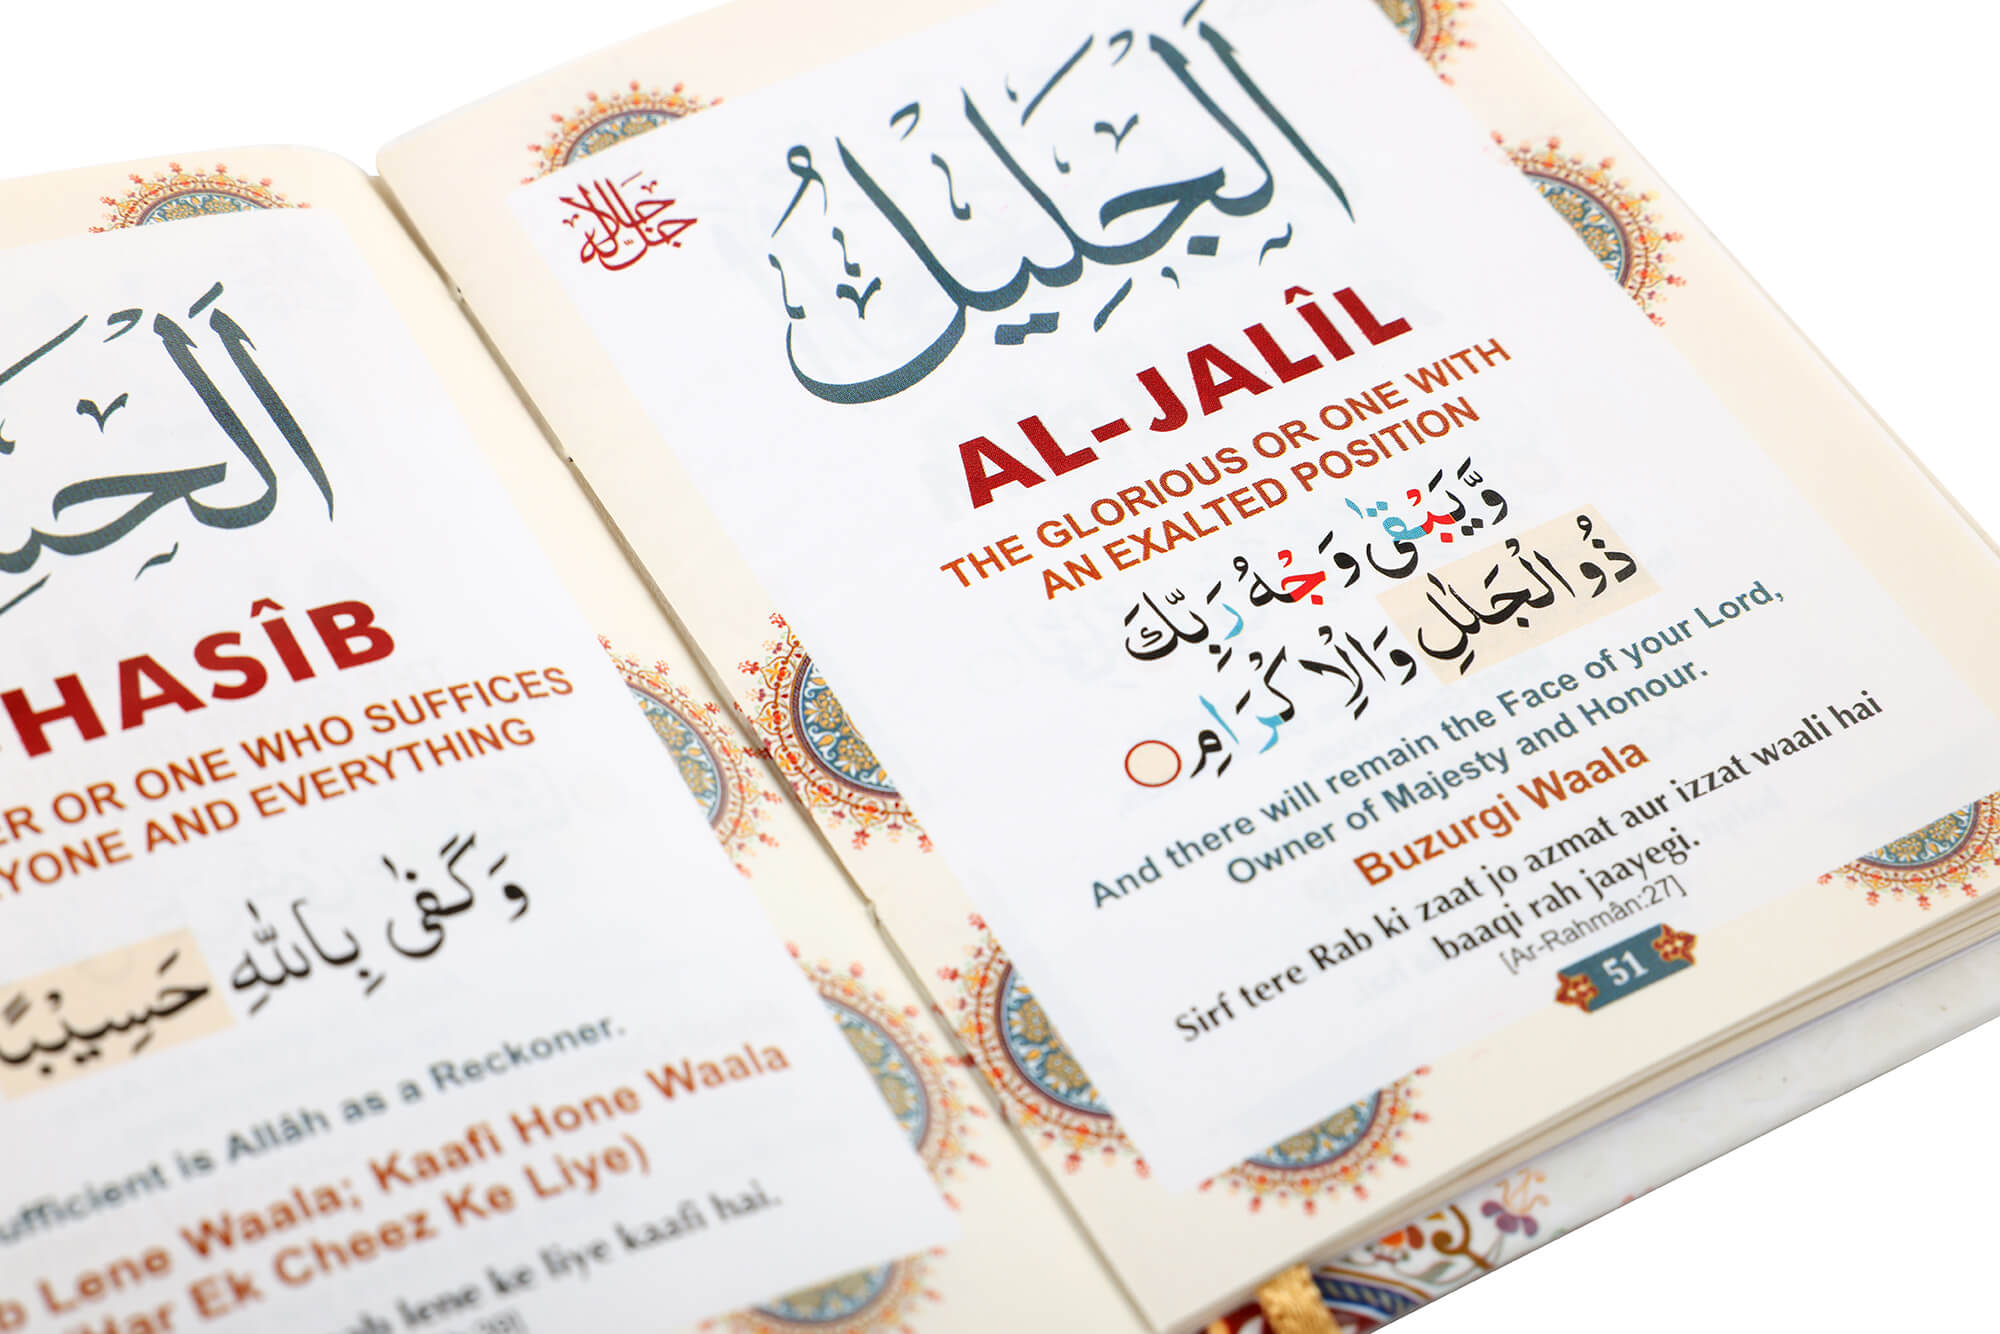 اَلْحَسِ
HASÎB
OR ONE WHO SUFFICES
AND EVERYTHING
وَكَفٰى بِاللّٰهِ حَسِيْبًا
is Allâh as a Reckoner.
Lene Waala; Kaafi Hone Waala
Har Ek Cheez Ke Liye)
lene ke liye kaafi hai.
جل جلاله
اَلْجَلِيْلُ
AL-JALÎL
THE GLORIOUS OR ONE WITH
AN EXALTED POSITION
وَّيَبْقٰى وَجْهُ رَبِّكَ
ذُو الْجَلٰلِ وَالْاِكْرَامِ
And there will remain the Face of your Lord,
Owner of Majesty and Honour.
Buzurgi Waala
Sirf tere Rab ki zaat jo azmat aur izzat waali hai
baaqi rah jaayegi.
[Ar-Rahmân:27]
51